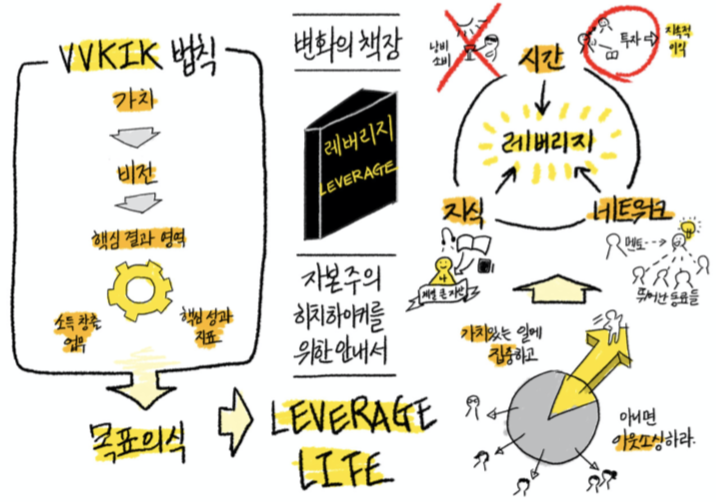 VVKIK 법칙
가치
비전
핵심 결과 영역
소득 창출
업무
핵심 성과
지표
목표의식
변화의 책장
레버리지
LEVERAGE
자본주의
히치하이커를
위한 안내서
LEVERAGE
LIFE
낭비
소비
시간
투자
지속적
이익
레버리지
지식
네트워크
나
멘토
뛰어난 동료들
가치있는 일에
집중하고
아니면
아웃소싱하라.